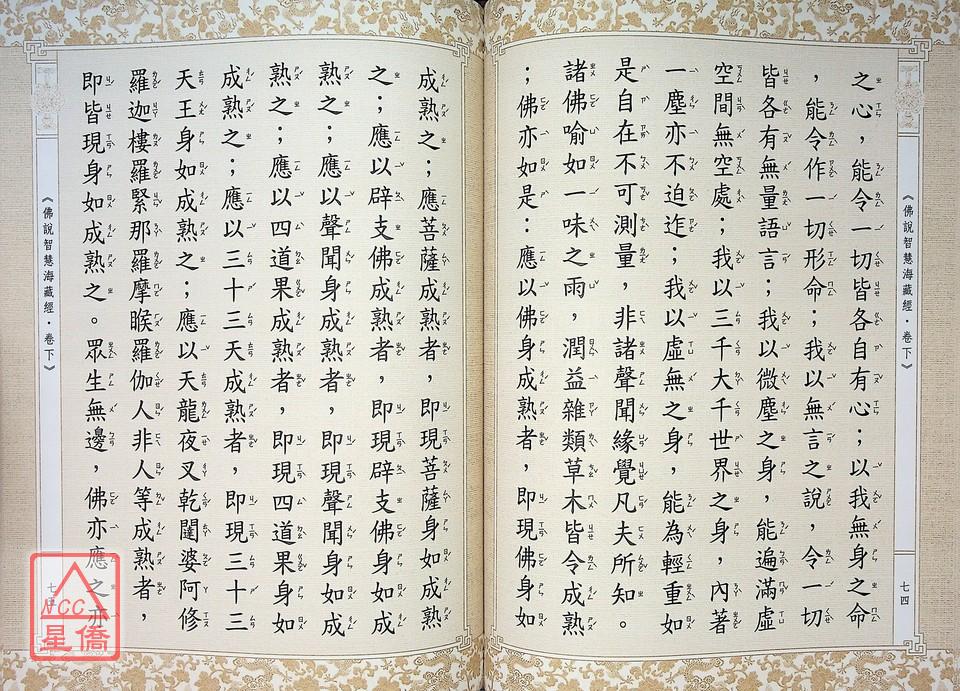 《佛說智慧海藏經·卷下》
七四
之心，能令一切皆各自有心；以我無身之命
，能令作一切形命；我以無言之說，令一切
皆各有無量語言；我以微塵之身，能遍滿虛
空間無空處；我以三千大千世界之身，內著
一塵亦不迫迮；我以虛無之身，能為輕重如
是自在不可測量，非諸聲聞緣覺凡夫所知。
諸佛喻如一味之雨，潤益雜類草木皆令成熟
；佛亦如是：應以佛身成熟者，即現佛身如
成熟之；應菩薩成熟者，即現菩薩身如成熟
之；應以辟支佛成熟者，即現辟支佛身如成
熟之；應以聲聞身成熟者，即現聲聞身如成
熟之；應以四道果成熟者，即現四道果身如
成熟之；應以三十三天成熟者，即現三十三
天王身如成熟之；應以天龍夜叉乾闥婆阿修
羅迦樓羅緊那羅摩睺羅伽人非人等成熟者，
即皆現身如成熟之。眾生無邊，佛亦應之亦
《佛說智慧海藏經·卷下》
NCC
星僑